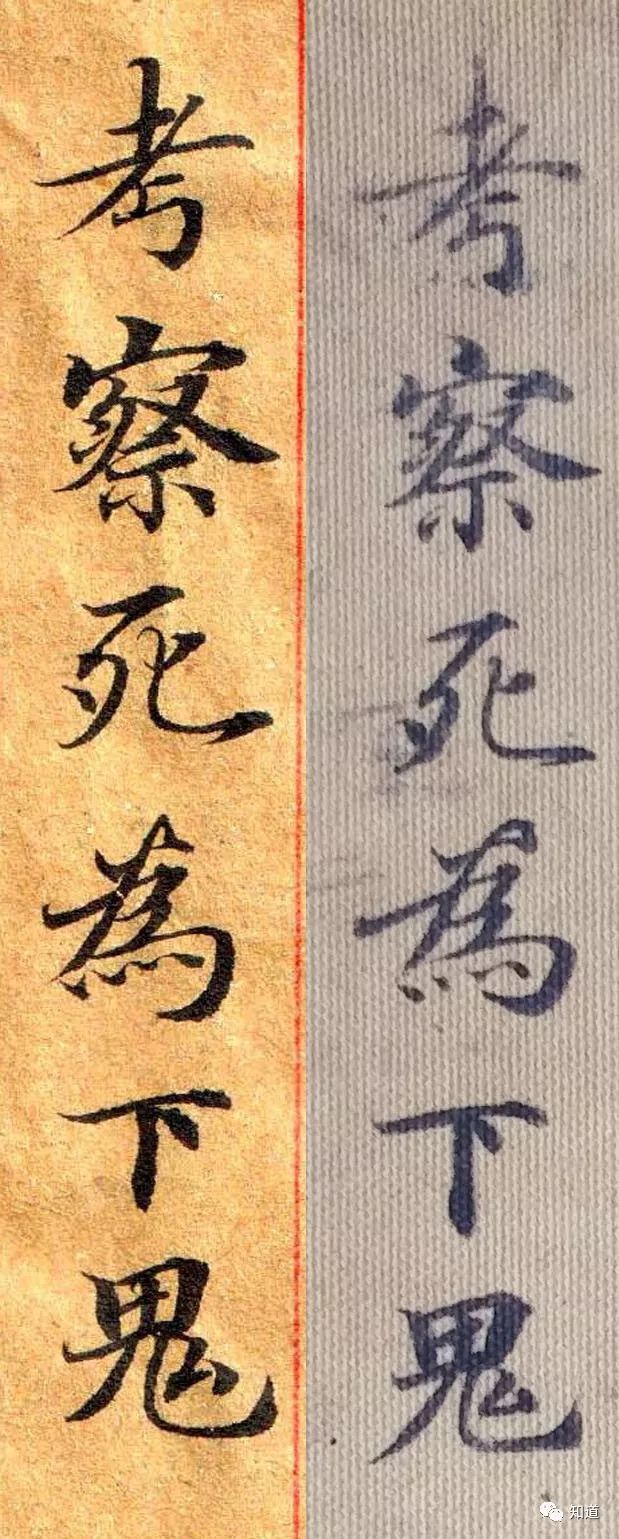 考察死為下鬼
考察死為下鬼
知道